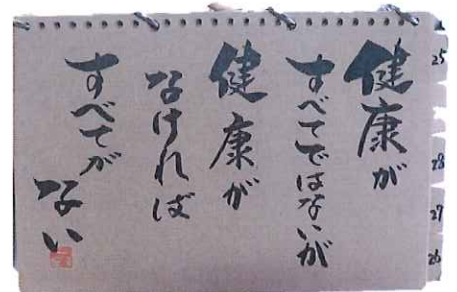 健康が
すべてではないが
健康が
なければ
すべてが
ない
25
28
27
26